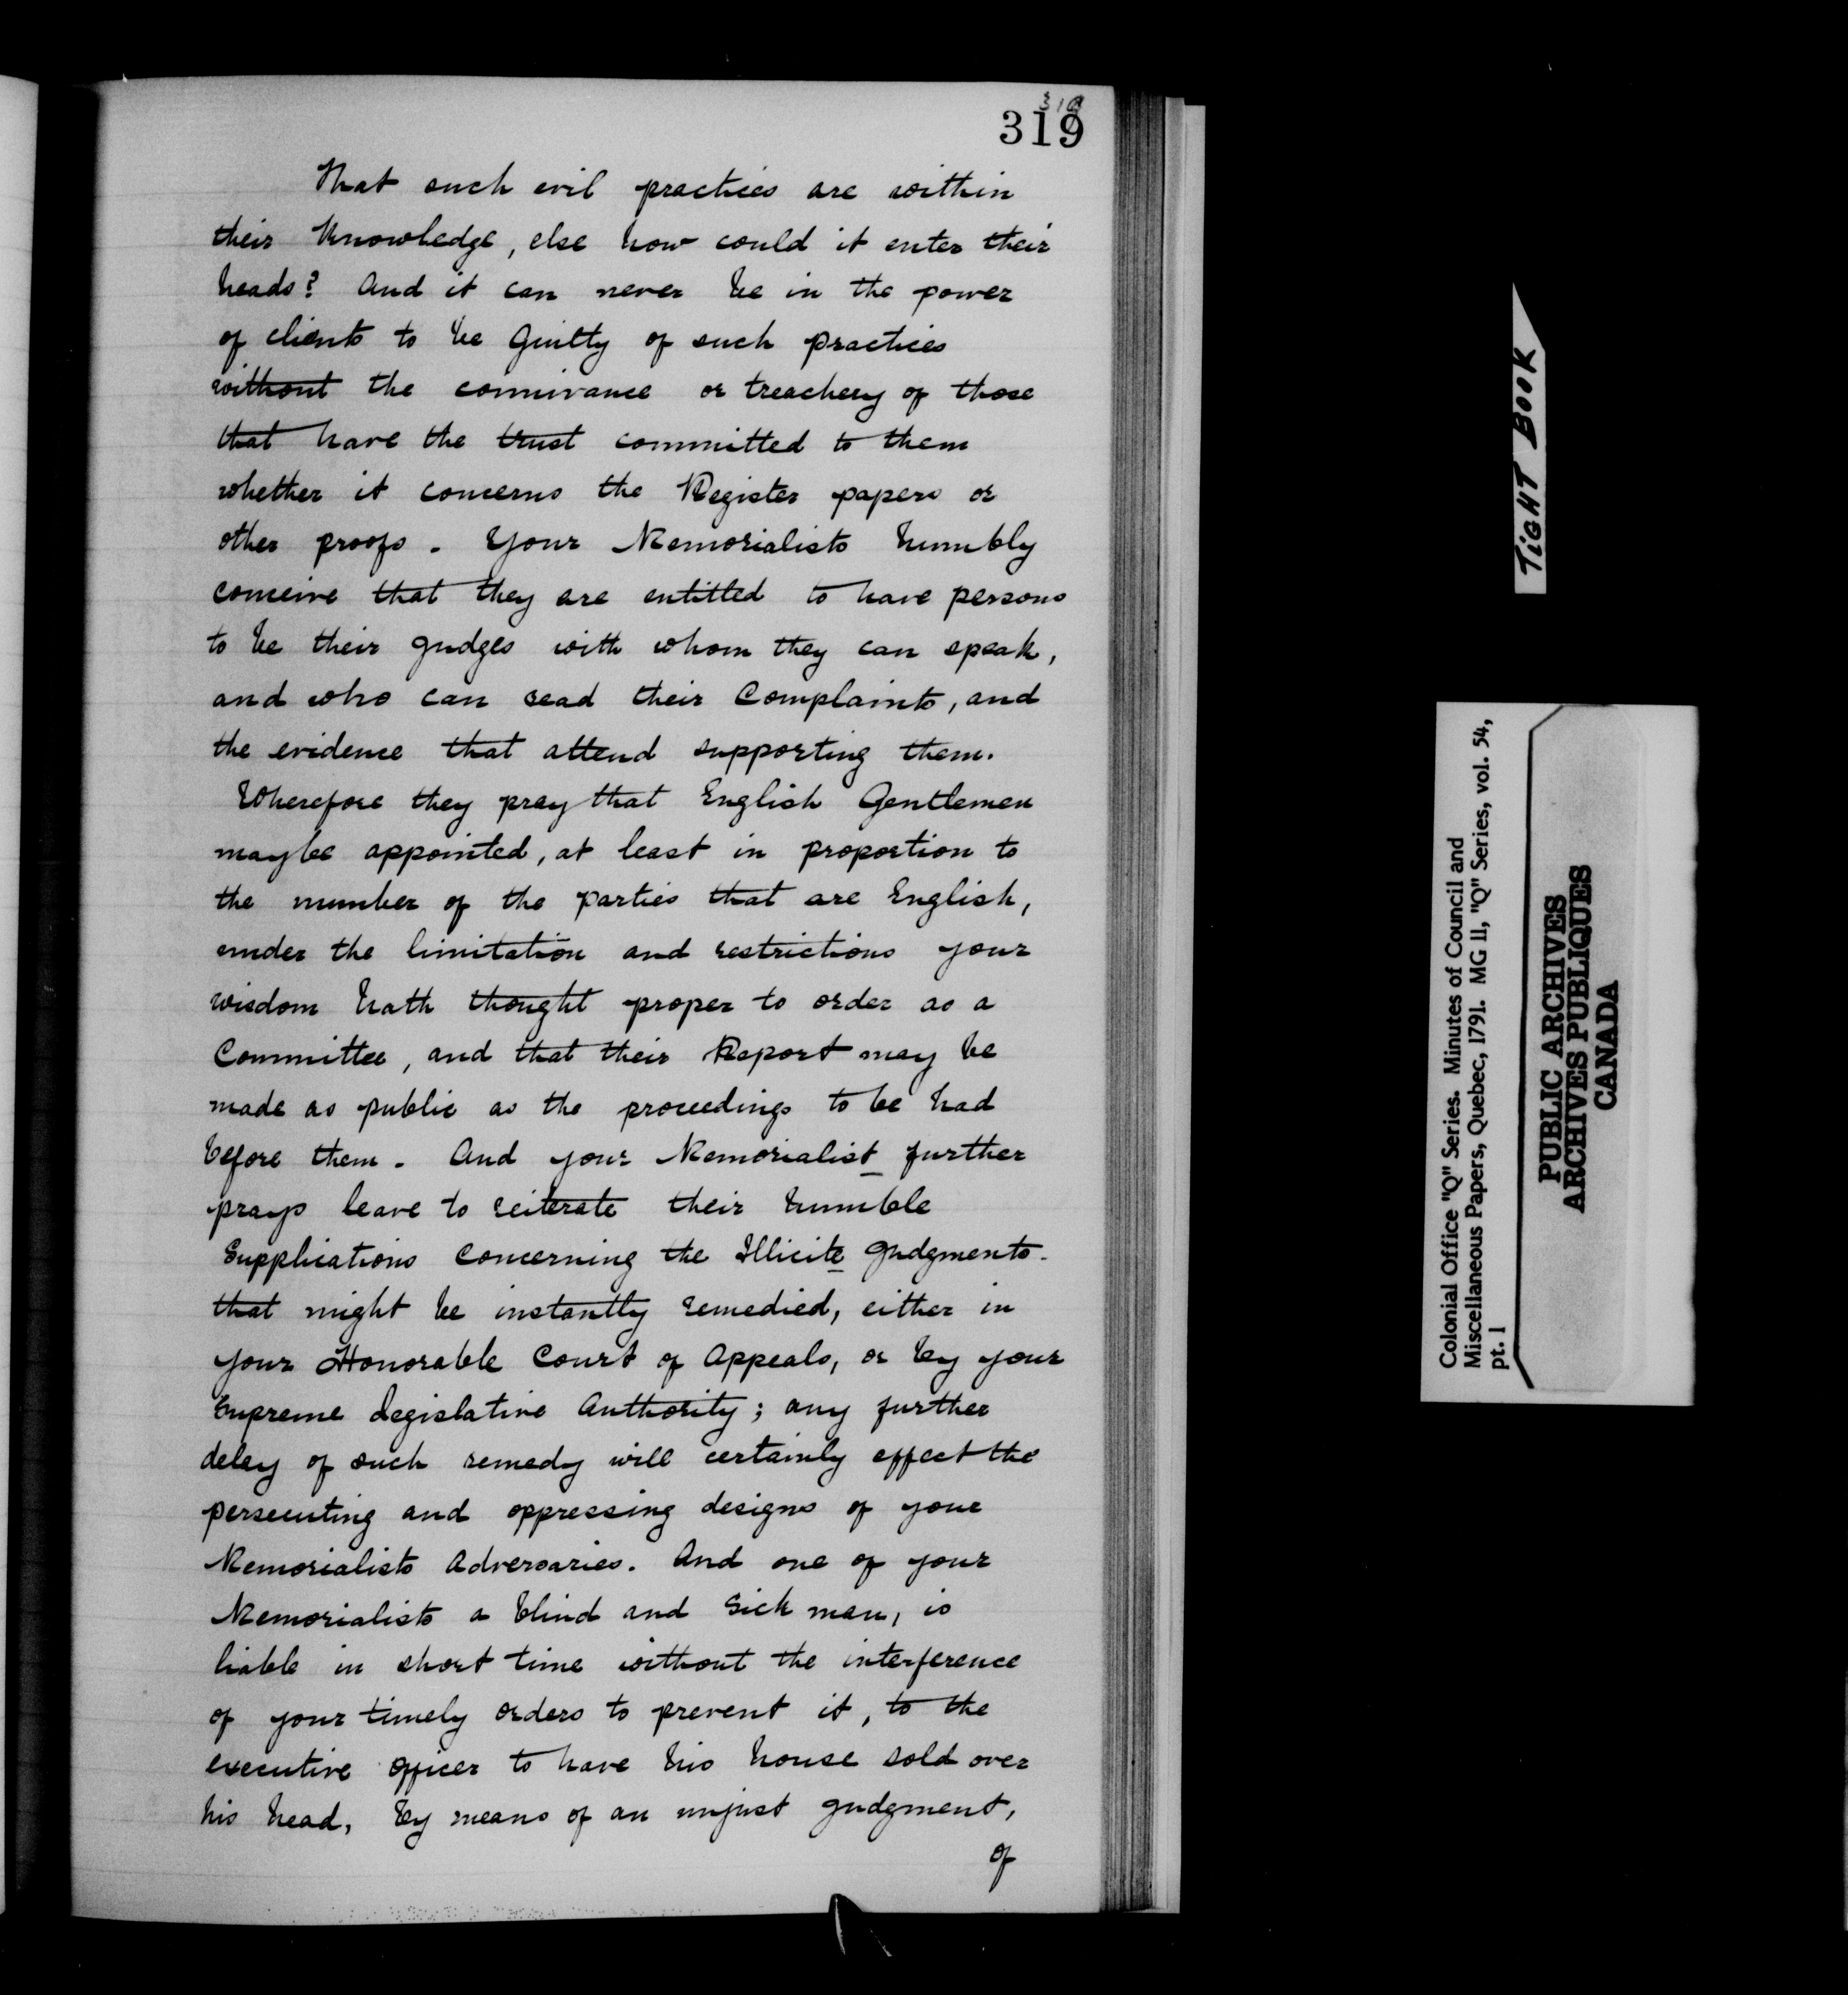 318
319
That such evil practices are within
their Knowledge, else how could it enter their
heads? And it can never be in the power
of clients to be Guilty of such practices
without the connivance or treachery of those
that have the trust committed to them
whether it concerns the Register papers or
other proofs. Your Memorialists humbly
conceive that they are entitled to have persons
to be their Judges with whom they can speak,
and who can read their Complaints, and
the evidence that attend supporting them.
Wherefore they pray that English Gentlemen
may be appointed, at least in proportion to
the number of the parties that are English,
under the limitation and restrictions your
wisdom hath thought proper to order as a
Committee, and that their Report may be
made as public as the proceedings to be had
before them. And your Memorialist further
prays leave to reiterate their humble
Supplications Concerning the Illicite Judgments
that might be instantly remedied, either in
your Honorable Court of Appeals, or by your
Supreme Legislative Authority; any further
delay of such remedy will certainly effect the
persecuting and oppressing designs of your
Memorialists Adversaries. And one of your
Memorialists a blind and Sick man, is
liable in short time without the interference
of your timely orders to prevent it, to the
executive Officer to have his house sold over
his head, by means of an unjust Judgment,
of
TIGHT BOOK
Colonial Office "Q" Series. Minutes of Council and
Miscellaneous Papers, Quebec, 1791. MG 11, "Q" Series, vol. 54,
pt. 1
PUBLIC ARCHIVES
ARCHIVES PUBLIQUES
CANADA